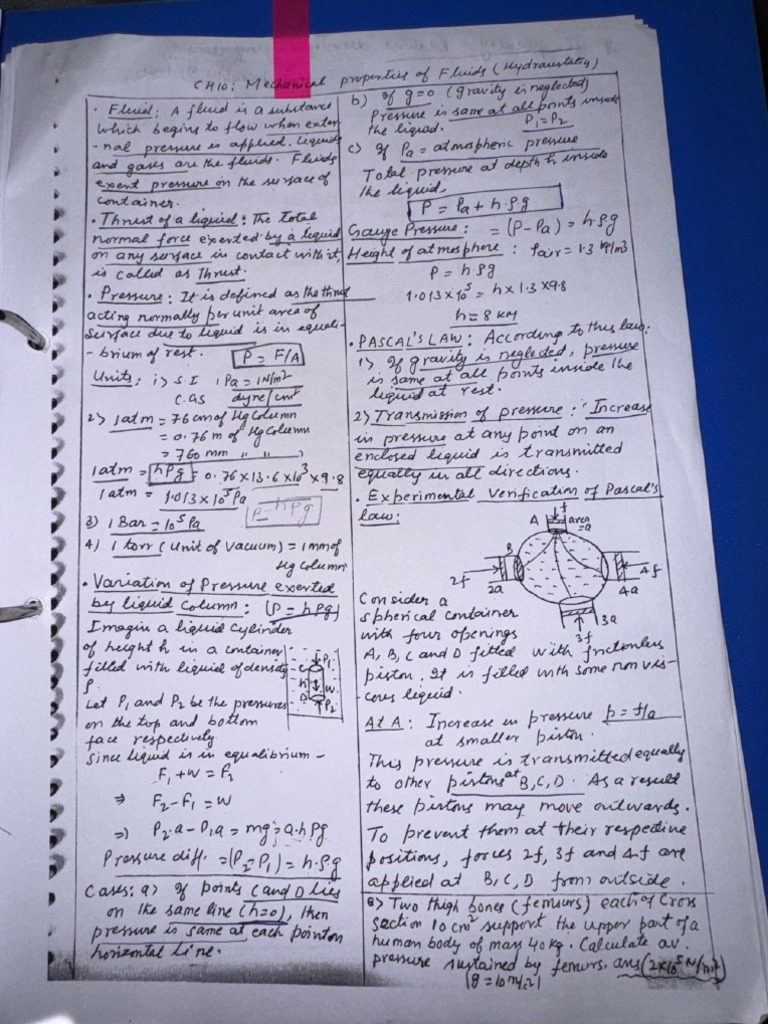 CH10: Mechanical properties of Fluids (Hydrostatics)
• Fluid: A fluid is a substance
which begins to flow when exter
-nal pressure is applied. Liquids
and gases are the fluids. Fluids
exert pressure on the surface of
container.
• Thrust of a liquid: The total
normal force exerted by a liquid
on any surface in contact with it,
is called as Thrust.
• Pressure: It is defined as the thrust
acting normally per unit area of
surface due to liquid is in equali-
-brium of rest. P = F/A
Units: i) S.I 1 Pa = 1N/m²
C.GS dyne/cm²
2) 1 atm = 76 cm of Hg Column
= 0.76 m of Hg Column
= 760 mm " " "
1 atm = hρg = 0.76×13.6×10³×9.8
1 atm = 1.013×10⁵ Pa
P = hρg
3) 1 Bar = 10⁵ Pa
4) 1 torr (Unit of Vacuum) = 1 mm of
Hg Column
• Variation of Pressure exerted
by liquid Column: (P = hρg)
Imagin a liquid Cylinder
of height h in a container
filled with liquid of density
ρ.
C P₁
h W
D P₂
Let P₁ and P₂ be the pressures
on the top and bottom
face respectively
Since liquid is in equalibrium -
F₁ + W = F₂
⇒ F₂ - F₁ = W
⇒ P₂.a - P₁a = mg = a.hρg
Pressure diff. = (P₂-P₁) = h.ρg
Cases: a) If points C and D lies
on the same line (h=0), then
pressure is same at each point on
horizontal line.
b) If g=0 (gravity is neglected)
Pressure is same at all points inside
the liquid. P₁=P₂
c) If Pa = atmospheric pressure
Total pressure at depth h inside
the liquid,
P = Pa + h.ρg
Gauge Pressure: = (P-Pa) = h.ρg
Height of atmosphere: ρair = 1.3 kg/m3
P = h.ρg
1.013×10⁵ = h×1.3×9.8
h = 8 KM
• PASCAL'S LAW: According to this law:
1) If gravity is neglected, pressure
is same at all points inside the
liquid at rest.
2) Transmission of pressure: Increase
in pressure at any point on an
enclosed liquid is transmitted
equally in all directions.
• Experimental Verification of Pascal's
law:
f
A area
=a
B
2f 2a 4a 4f
3a
3f
Consider a
spherical container
with four openings
A, B, C and D fitted with frictionless
piston. It is filled with some non vis-
-cous liquid.
At A: Increase in pressure p = f/a
at smaller piston.
This pressure is transmitted equally
to other pistons at B, C, D. As a result
these pistons may move outwards.
To prevent them at their respective
positions, forces 2f, 3f and 4f are
applied at B, C, D from outside.
Q) Two thigh bones (femurs) each of Cross
section 10 cm² support the upper part of a
human body of mass 40 kg. Calculate av.
pressure sustained by femurs. ans (2×10⁵ N/m²)
(g = 10 m/s2)